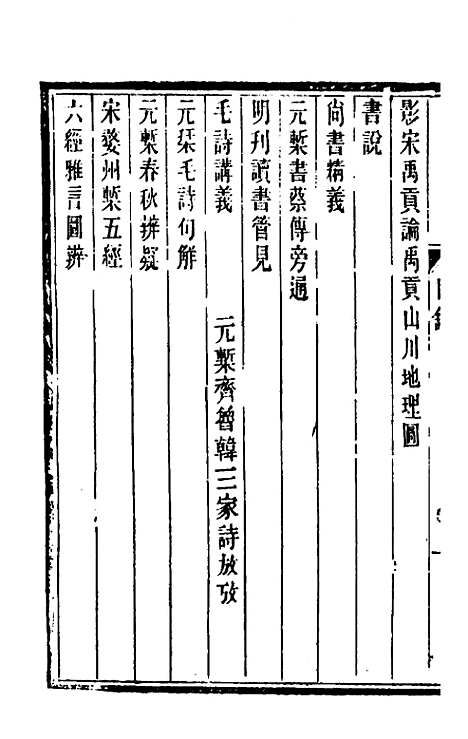 影宋禹貢論禹貢山川地理圖
書說
尚書精義
元槧書蔡傳旁通
明刊讀書管見
毛詩講義　元槧齊魯韓三家詩放攷
元栞毛詩句解
元槧春秋辨疑
宋婺州槧五經
六經雅言圖辨